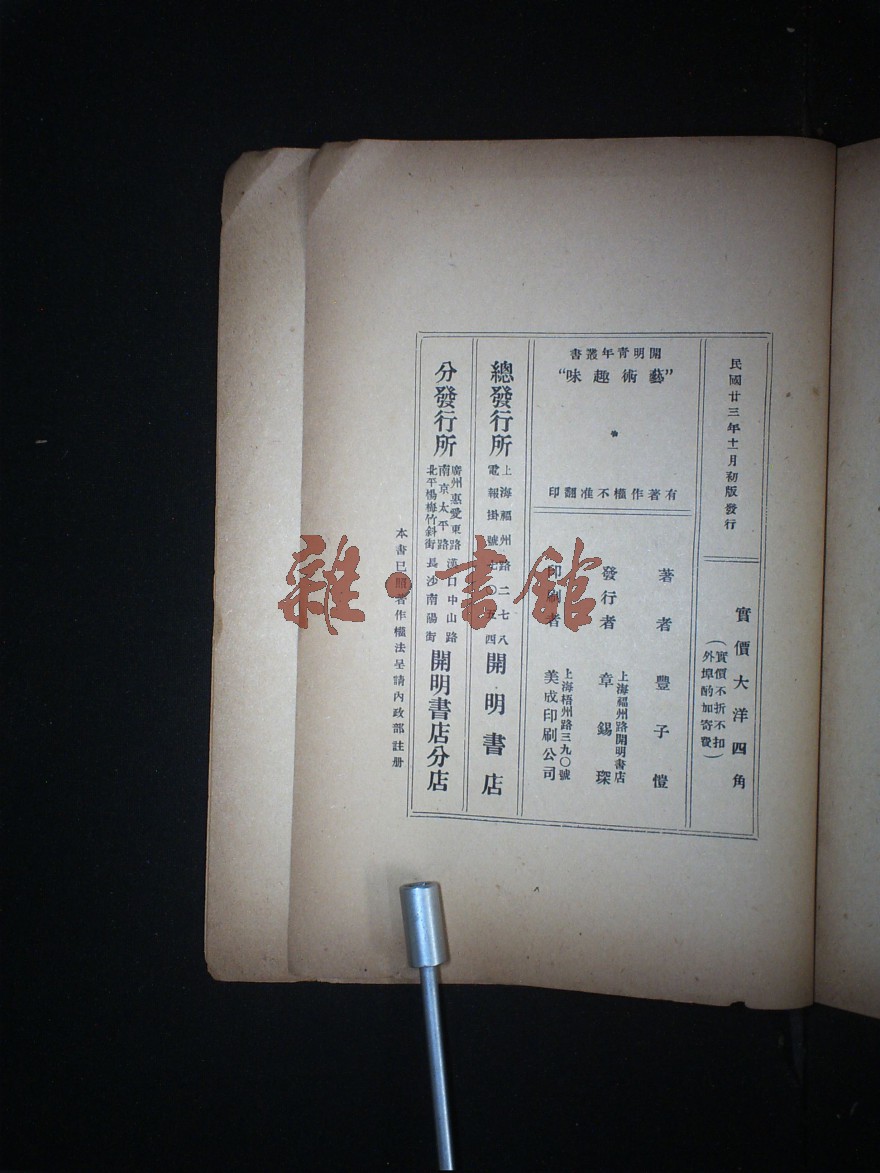 民國廿三年十一月初版發行
實價大洋四角
(實價不折不扣
外埠酌加寄費)
開明青年叢書
“藝術趣味”
有著作權不准翻印
著者 豐子愷
發行者 章錫琛
上海福州路開明書店
印刷者 美成印刷公司
上海梧州路三九〇號
總發行所
上海福州路二七八號
電報掛號七〇五四
開明書店
分發行所
廣州惠愛東路 漢口中山路
南京太平路
北平楊梅竹斜街 長沙南陽街
開明書店分店
本書已照著作權法呈請內政部註册
雜·書館